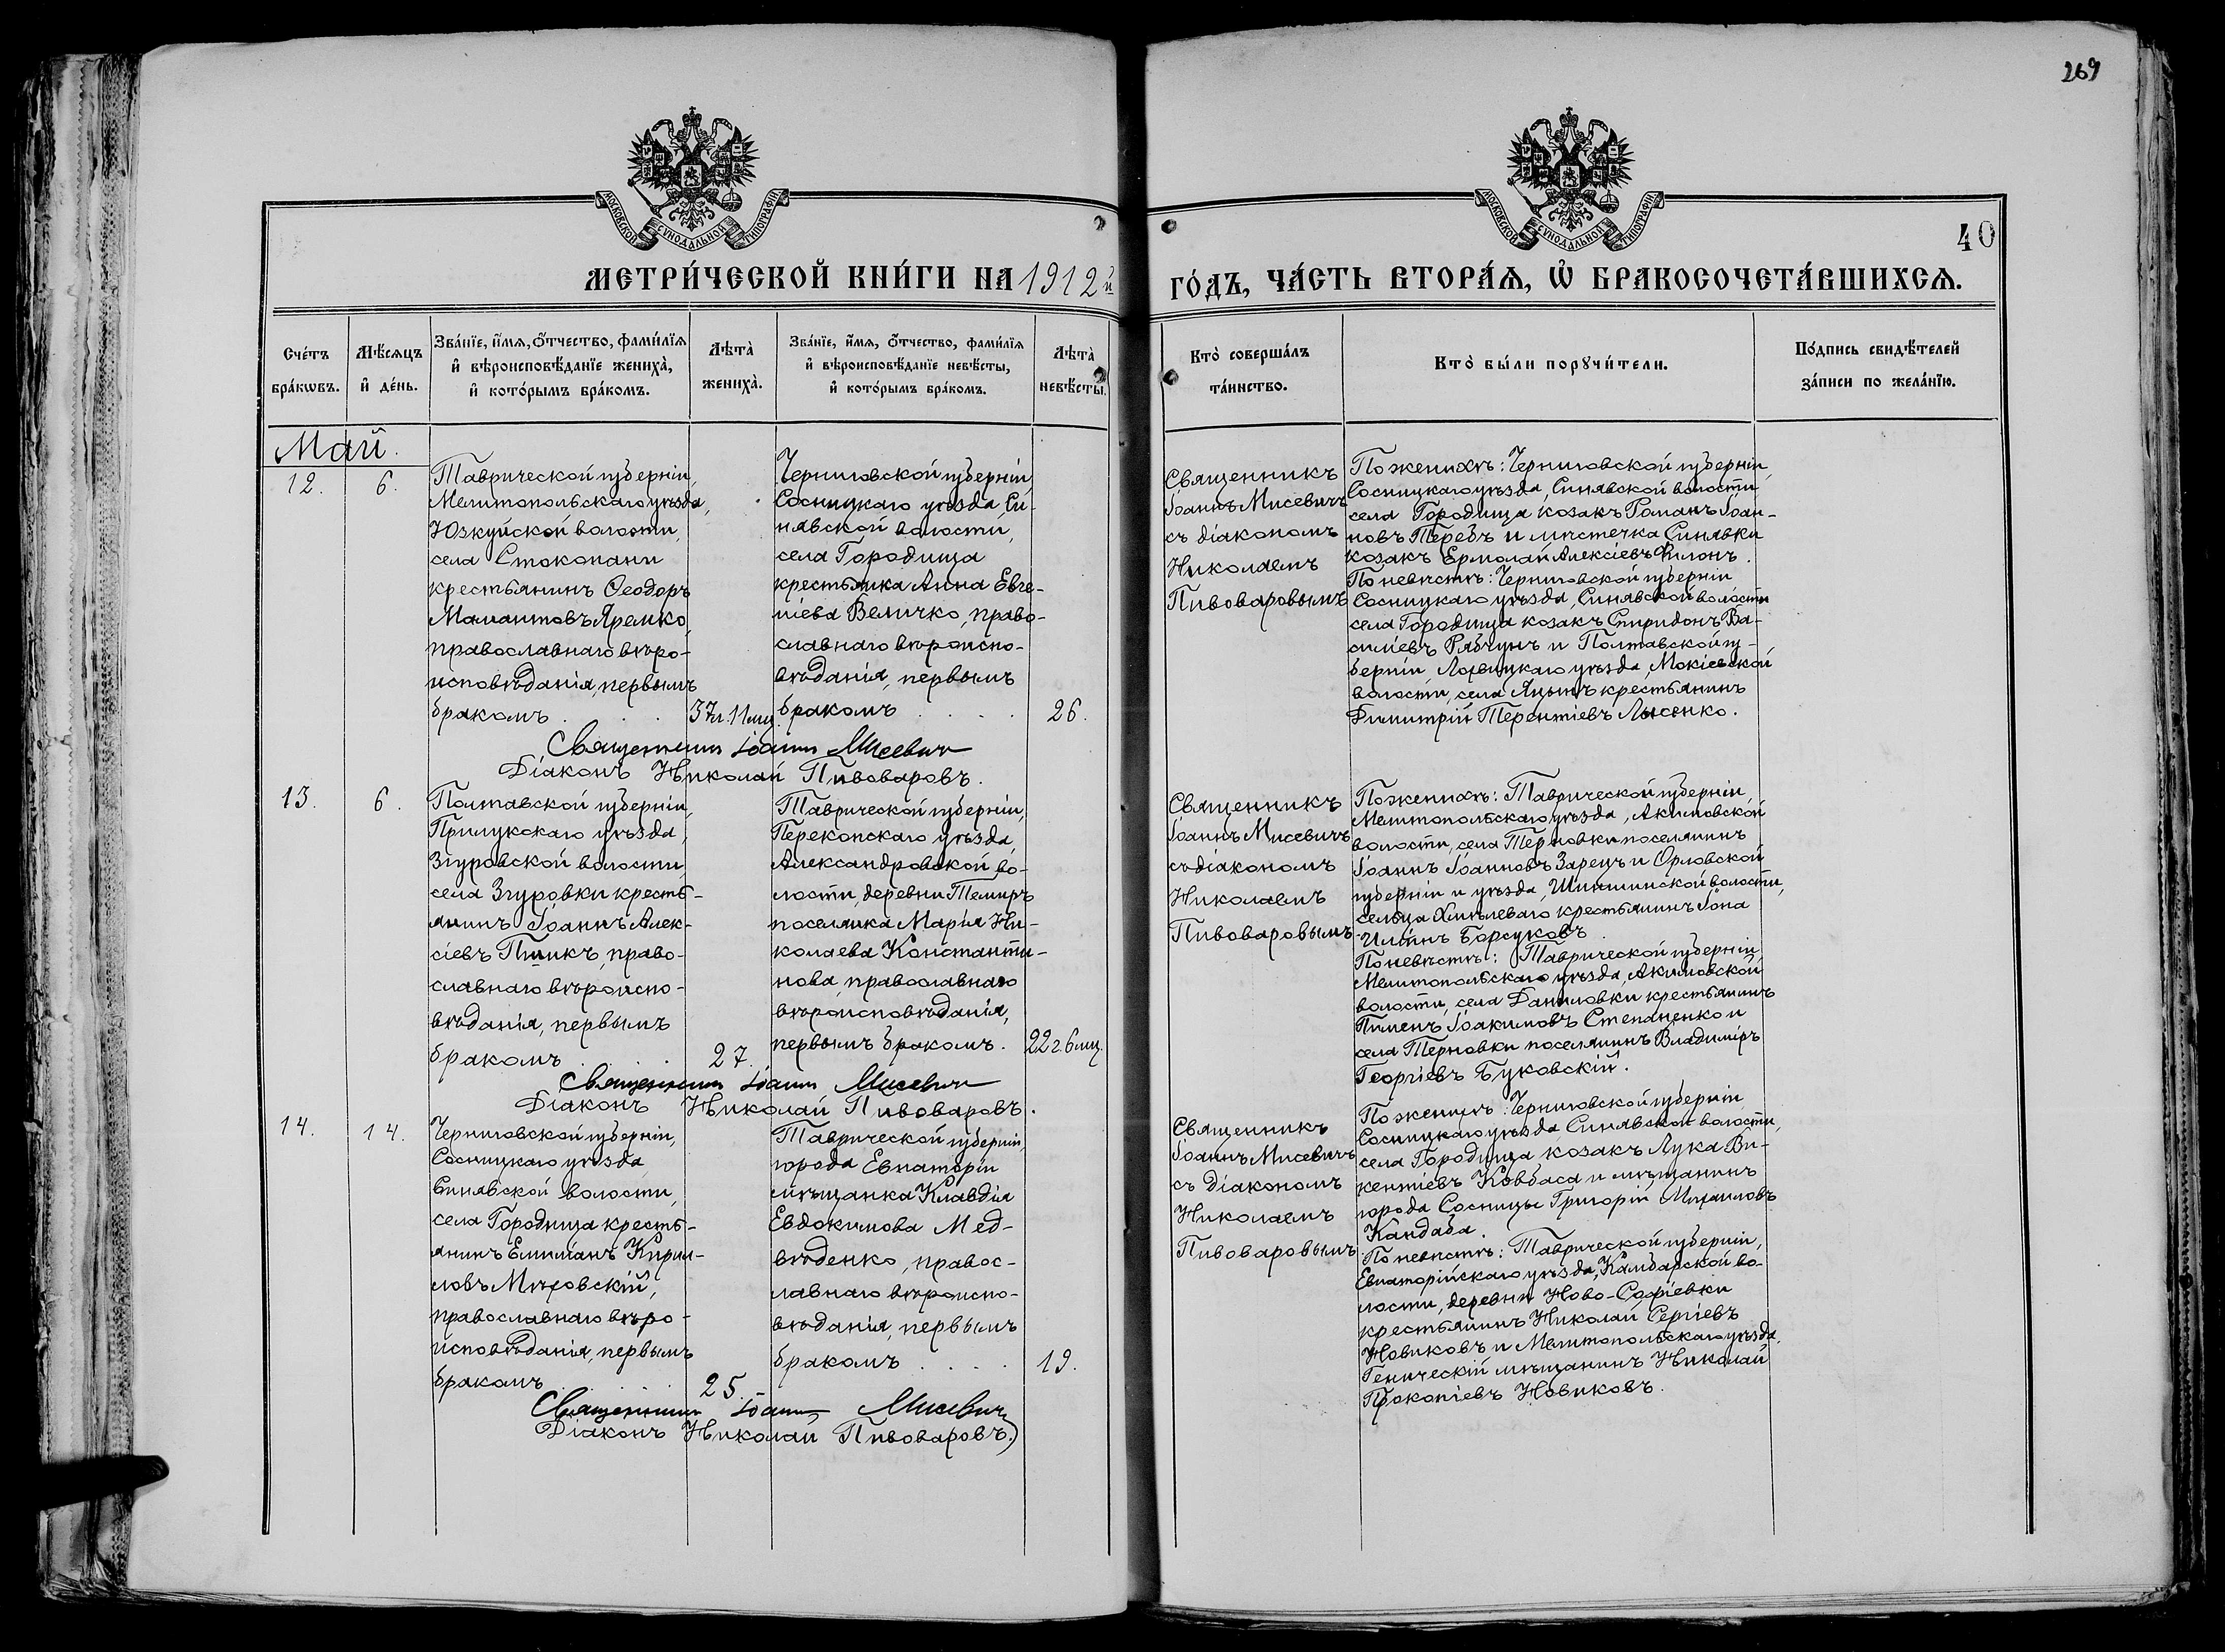 269
МОСКОВСКОЙ СѴНОДАЛЬНОЙ ТИПОГРАФІИ
МОСКОВСКОЙ СѴНОДАЛЬНОЙ ТИПОГРАФІИ
40
МЕТРИ́ЧЕСКОЙ КНИ́ГИ НА 1912й
ГО́ДЪ, ЧА́СТЬ ВТОРА́Ѧ, Ѡ БРАКОСОЧЕТА́ВШИХСѦ.
Сче́тъ
бра́кѡвъ.
Мѣ́сѧцъ
и де́нь.
Зва́нїе, и́мѧ, о́тчество, фами́лїѧ
и вѣроисповѣ́данїе жениха̀,
и кото́рымъ бра́комъ.
Лѣта̀
жениха̀.
Зва́нїе, и́мѧ, о́тчество, фами́лїѧ
и вѣроисповѣ́данїе невѣ́сты,
и кото́рымъ бра́комъ.
Лѣта̀
невѣ́сты.
Кто̀ соверша́лъ
та́инство.
Кто̀ бы́ли порꙋчи́тели.
По́дпись свидѣ́телей
за́писи по жела́нїю.
Май.
12.
6.
Таврической губерніи,
Мелитопольскаго уѣзда,
Юзкуйской волости,
села Стокопани
крестьянинъ Ѳеодоръ
Мамантовъ Яремко,
православнаго вѣро-
исповѣданія, первымъ
бракомъ . . .
37л. 11мц.
Черниговской губерніи
Сосницкаго уѣзда Си-
нявской волости,
села Городища
крестьянка Анна Евге-
ніева Величко, право-
славнаго вѣроиспо-
вѣданія, первымъ
бракомъ . . . .
26.
Священникъ Іоаннъ Мисевичъ
Діаконъ Николай Пивоваровъ.
Священникъ
Іоаннъ Мисевичъ
съ діакономъ
Николаемъ
Пивоваровымъ
По женихѣ: Черниговской губерніи
Сосницкаго уѣзда, Синявской волости
села Городища козакъ Романъ Іоан-
новъ Теребъ и мѣстечка Синявки
козакъ Ермолай Алексіевъ Филонъ.
По невѣстѣ: Черниговской губерніи
Сосницкаго уѣзда, Синявской волости
села Городища козакъ Спиридонъ Ва-
силіевъ Рябчунъ и Полтавской гу-
берніи Лохвицкаго уѣзда, Мокіевской
волости, села Яцынъ крестьянинъ
Димитрій Терентіевъ Лысенко.
13.
6.
Полтавской губерніи,
Прилукскаго уѣзда,
Згуровской волости
села Згуровки кресть-
янинъ Іоаннъ Алек-
сіевъ право-
славнаго вѣроиспо-
вѣданія, первымъ
бракомъ . .
27.
Таврической губерніи,
Перекопскаго уѣзда
Александровской во-
лости, деревни Темиръ
поселянка Марія Ни-
колаева Константи-
нова, православнаго
вѣроисповѣданія,
первымъ бракомъ.
22г. 6мц.
Священникъ Іоаннъ Мисевичъ
Діаконъ Николай Пивоваровъ.
Священникъ
Іоаннъ Мисевичъ
съ діакономъ
Николаемъ
Пивоваровымъ.
По женихѣ: Таврической губерніи,
Мелитопольскаго уѣзда, Акимовской
волости, села Терновки поселянинъ
Іоаннъ Іоанновъ Зарецъ и Орловской
губерніи и уѣзда, волости,
сельца Хмѣлеваго крестьянинъ Іона
Ильинъ Борсуковъ.
По невѣстѣ: Таврической губерніи,
Мелитопольскаго уѣзда, Акимовской
волости, села Даниловки крестьянинъ
Пименъ Іоакимовъ Степаненко и
села Терновки поселянинъ Владиміръ
Георгіевъ Буковскій.
14.
14.
Черниговской губерніи,
Сосницкаго уѣзда
Синявской волости,
села Городища кресть-
янинъ Емиліанъ Кирил-
ловъ Мѣховскій,
православнаго вѣро-
исповѣданія, первымъ
бракомъ . . . .
25.
Таврической губерніи,
города Евпаторіи
мѣщанка Клавдія
Евдокимова Мед-
вѣденко, правос-
лавнаго вѣроиспо-
вѣданія, первымъ
бракомъ . . . .
19.
Священникъ Іоаннъ Мисевичъ
Діаконъ Николай Пивоваровъ.
Священникъ
Іоаннъ Мисевичъ
съ діакономъ
Николаемъ
Пивоваровымъ.
По женихѣ: Черниговской губерніи
Сосницкаго уѣзда Синявской волости,
села Городища козакъ Лука Ви-
кентіевъ Ковбаса и мѣщанинъ
города Сосницы Григорій Михаиловъ
Кандаба.
По невѣстѣ: Таврической губерніи,
Евпаторійскаго уѣзда, Камбарской во-
лости, деревни Ново-Софіевки
крестьянинъ Николай Сергіевъ
Новиковъ и Мелитопольскаго уѣзда,
Геническій мѣщанинъ Николай
Прокопіевъ Новиковъ.